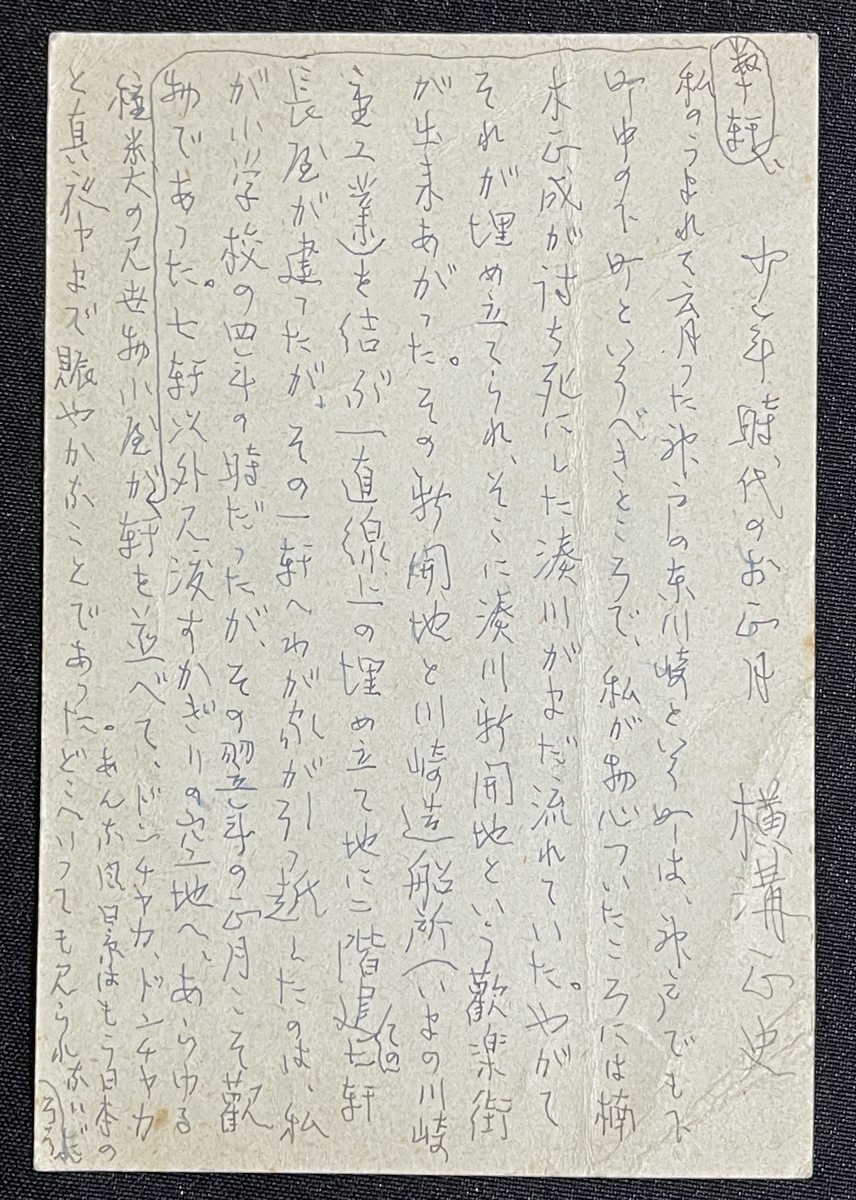 少年時代のお正月　横溝正史
私のうまれて育った神戸の東川崎という町は、神戸でも下
町中の下町というべきところで、私が物心ついたころには楠
木正成が討ち死にした湊川がまだ流れていた。やがて
それが埋め立てられ、そこに湊川新開地という歓楽街
が出来あがった。その新開地と川崎造船所（いまの川崎
重工業）を結ぶ一直線上の埋め立て地に二階建ての七軒
長屋が建ったが、その一軒へわが家がひっ越したのは、私
が小学校の四年の時だったが、その翌年の正月こそ観
物であった。七軒以外見渡すかぎりの空地へ、あらゆる
種類の見世物小屋が数軒軒を並べて、ドンチャカ、ドンチャカ
と真夜中まで賑やかなことであった。あんな風景はもう日本の
どこへいっても見られないだろう